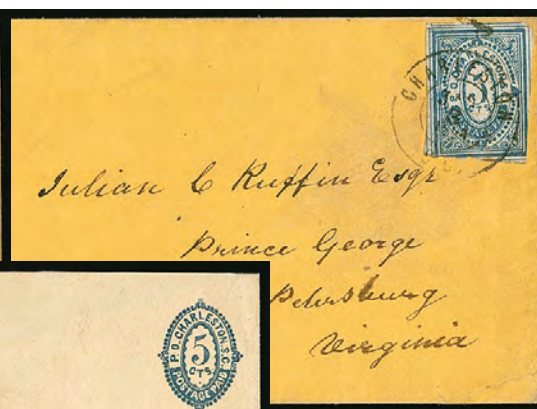 CHARLESTON
5
CTS
Julian C Ruffin Esqr
Prince George
Petersburg
Virginia
P.O. CHARLESTON. S.C.
5
CTS
POSTAGE PAID